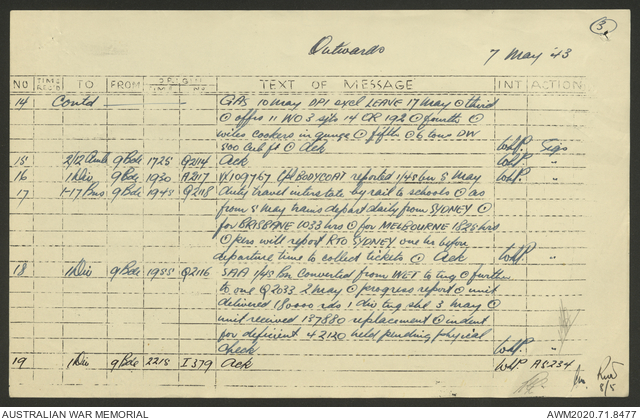 3
Outwards
7 May '43
NO TIME REC'D TO FROM ORIGIN TIME NO. TEXT OF MESSAGE INT ACTION
14 Contd GAS 10 May DPI excl LEAVE 17 May @ third
@ offrs 11 WO 3 sjts 14 OR 192 @ fourth @
wiles cookers in gunge @ fifth @ 6 tons DW
500 Cub ft @ Ack WHP. Sigs
15 2/12 9 Bde 1725 Q2114 Ack WHP. "
16 1 Div 9 Bde 1930 A217 VX109767 BODYCOAT reported 1/45 bn 5 May WHP. "
17 1-17 Bns 9 Bde 1945 Q2118 duty travel interstate by rail to schools @ as
from 8 May trains depart daily from SYDNEY @
for BRISBANE 1033 hrs @ for MELBOURNE 1825 hrs
@ pers will report RTO SYDNEY one hr before
departure time to collect tickets @ Ack WHP. "
18 1 Div 9 Bde 1955 Q2116 SAA 1/45 bn converted from WET to tng @ further
to one Q2033 2 May @ progress report @ unit
delivered 180000 rds 1 div tng shd 3 May @
unit received 187880 replacement @ indent
for deficient 42120 held pending physical
check WHP. "
19 1 Div 9 Bde 2215 I379 Ack WHP AS234
8/5
AUSTRALIAN WAR MEMORIAL AWM2020.71.8477